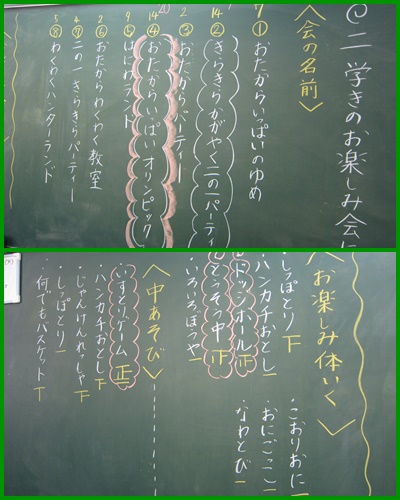 ◎二学きのお楽しみ会に
〈会の名前〉
7 ① おたからいっぱいのゆめ
14 ② きらきらかがやく二の一パーティ
2 ③ おたからパーティー
14 ④ おたからいっぱいオリンピック
9 ⑤ はにわランド
2 ⑥ おたからわくわく教室
4 ⑦ 二の一きらきらパーティー
5 ⑧ わくわくハンターランド
〈お楽しみ体いく〉
・しっぽとり 下
・ハンカチおとし 一
ドッジボール 正
とうそう中 正
・いろいろほうや 一
・こおりおに 一
・おにごっこ 一
・なわとび 一
〈中あそび〉
・いすとりゲーム 正
・ハンカチおとし 下
・じゃんけんれっしゃ 下
・しっぽとり 一
・何でもバスケット T